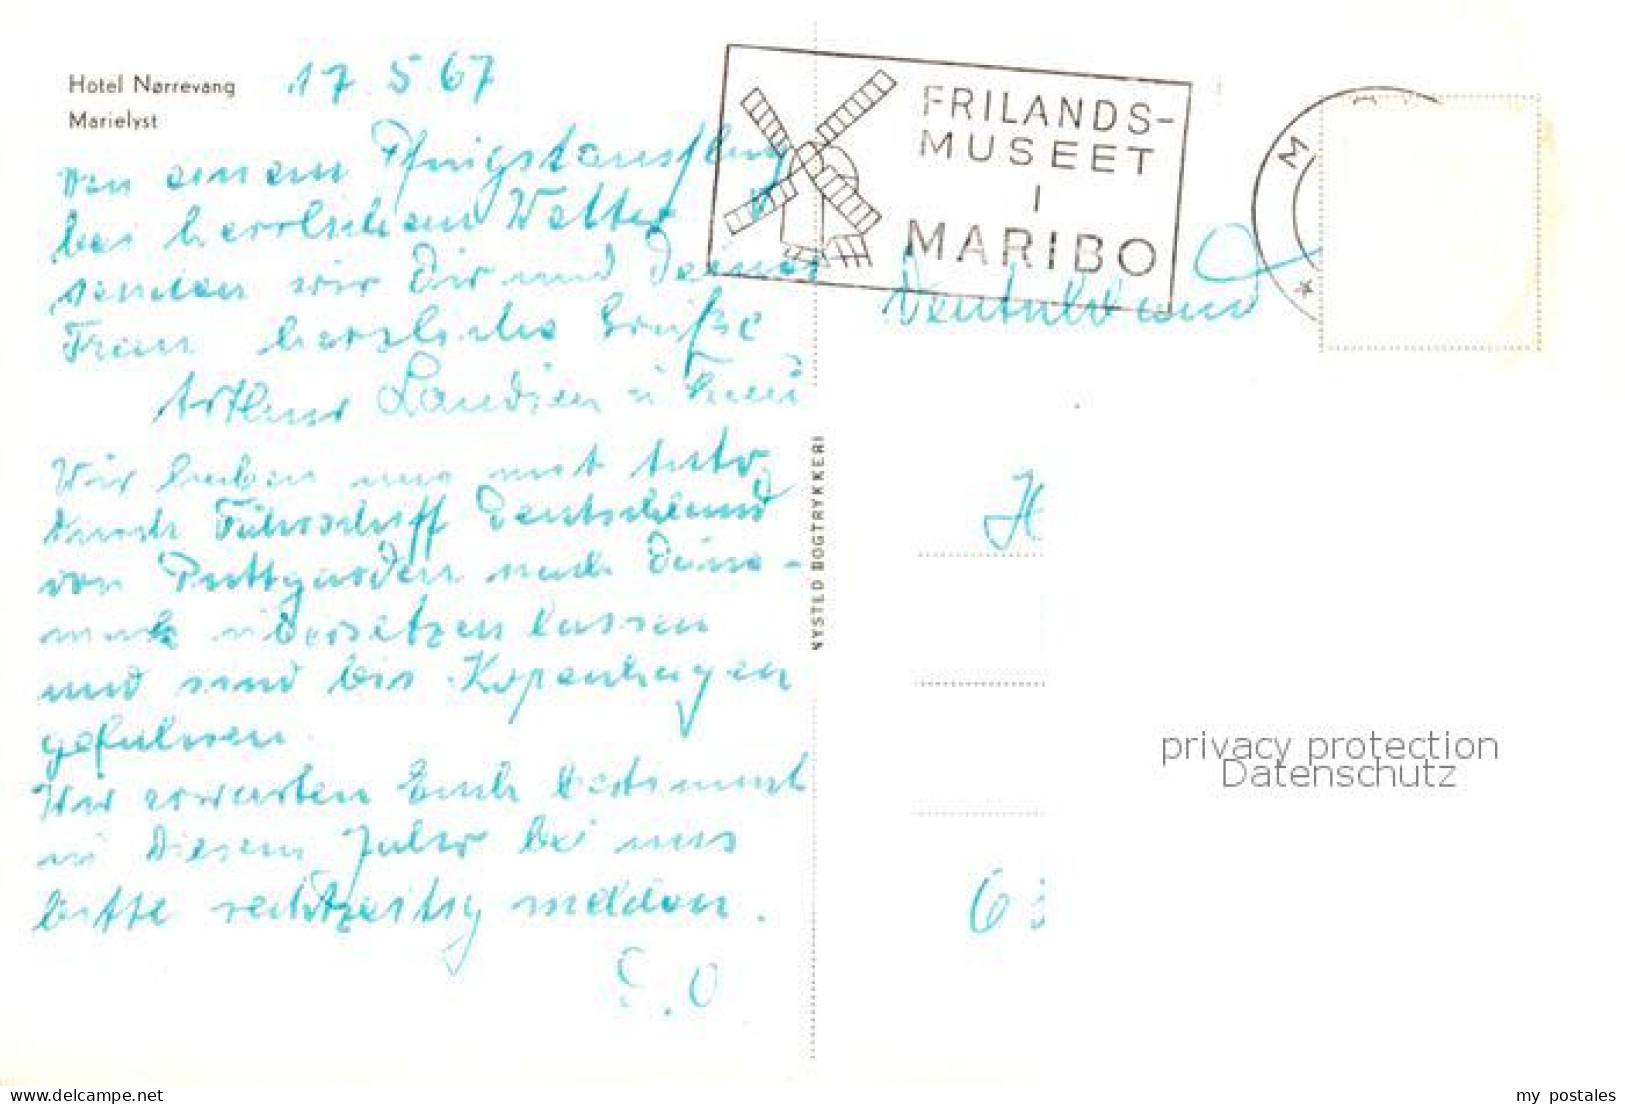 Hotel Nørrevang
Marielyst
17.5.67
Von einem Pfingstausflug
bei herrlichem Wetter
senden wir Dir und Deiner
Frau herzliche Grüße
Arthur u Frau
Wir haben uns mit Auto
durch Fährschiff Deutschland
von Puttgarden nach Däne-
mark übersetzen lassen
und sind bis Kopenhagen
gefahren.
Wir erwarten Euch bestimmt
in diesem Jahr bei uns
bitte rechtzeitig melden.
FRILANDS-
MUSEET
I
MARIBO
M
Deutschland
NYSTED BOGTRYKKERI
H
6
privacy protection
Datenschutz
www.delcampe.net
my_postales